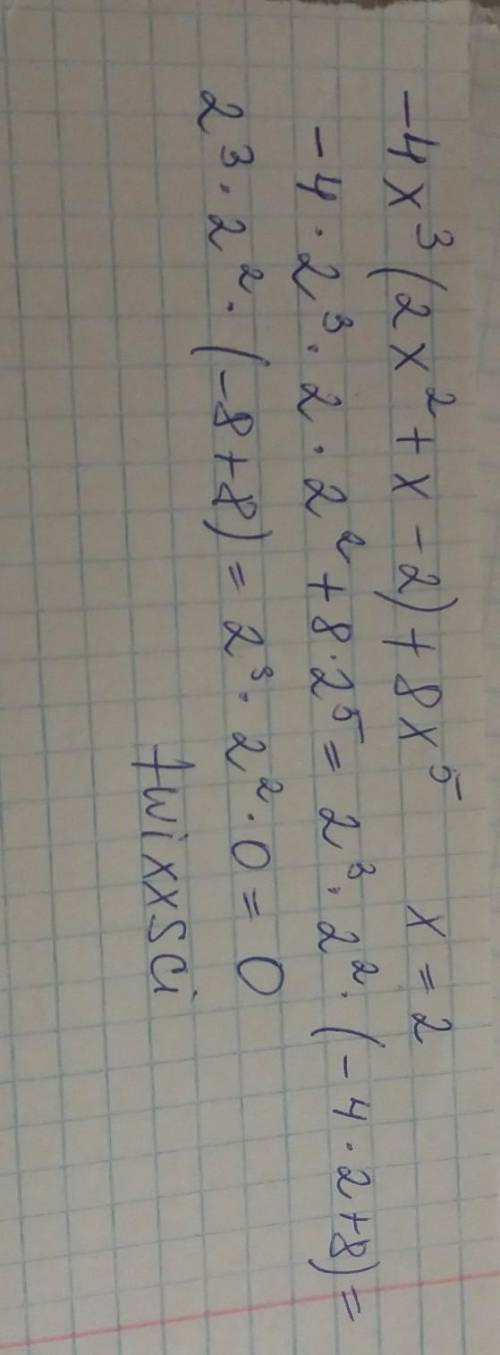 -4x³(2x²+x-2)+8x⁵ x=2
-4·2³·2·2²+8·2⁵=2³·2²·(-4·2+8)=
2³·2²·(-8+8)=2³·2²·0=0
twixxsci